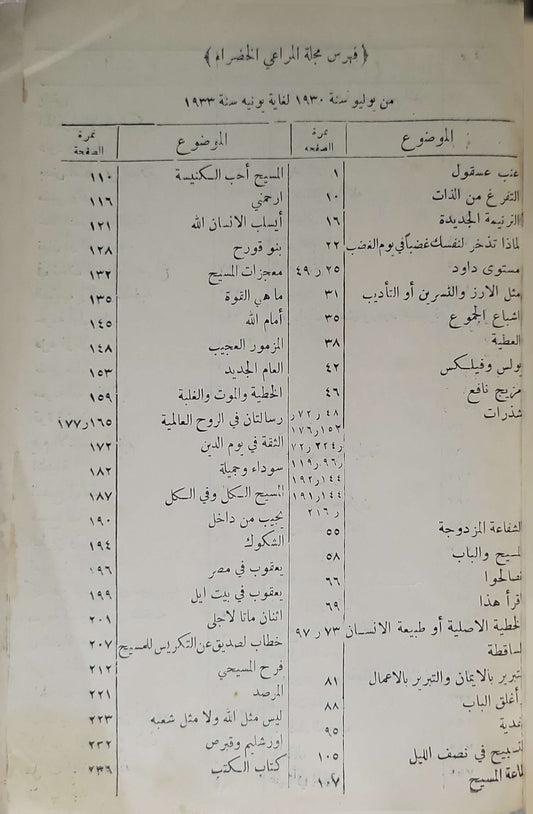 ﴿ فهرس مجلة المراعي الخضراء ﴾
من يوليو سنة ١٩٣٠ لغاية يونيه سنة ١٩٣٣
الموضوع نمرة الصفحة
عنب عسقول ١
التفرغ من الذات ١٠
الترنيمة الجديدة ١٦
لماذا تذخر لنفسك غضباً في يوم الغضب ٢٢
مستوى داود ٢٥ ر ٤٩
مثل الارز والفسرين أو التأديب ٣١
اشباع الجموع ٣٥
العطية ٣٨
بولس وفيلكس ٤٢
مزيج نافع ٤٦
شذرات ٤٨ ر ٧٢ر
١٥٢ر١٧٦
ر٢٢٤ر٧٢
ر٩٦ر١١٩
١٤٤ر١٩٢
١٤٤ر١٩١
ر ٢١٦
لشفاعة المزدوجة ٥٥
لمسيح والباب ٥٨
تصالحوا ٦٦
اقرأ هذا ٦٩
لخطية الاصلية أو طبيعة الانسان ٧٣ ر ٩٧
لساقطة
لتبرير بالايمان والتبرير بالاعمال ٨١
أغلق الباب ٨٨
٩٥
لتسبيح في نصف الليل ١٠٥
طاعة المسيح ١٠٧
الموضوع نمرة الصفحة
المسيح أحب الكنيسة ١١٠
ارحمني ١١٦
أيسلب الانسان الله ١٢١
بنو قورح ١٢٨
معجزات المسيح ١٣٢
ما هي القوة ١٣٥
أمام الله ١٤٥
المزمور العجيب ١٤٨
العام الجديد ١٥٣
الخطية والموت والغلبة ١٥٩
رسالتان في الروح العالمية ١٦٥ر١٧٧
الثقة في يوم الدين ١٧٢
سوداء وجميلة ١٨٢
المسيح الكل وفي الكل ١٨٧
يجيب من داخل ١٩٠
الشكوك ١٩٤
يعقوب في مصر ٩٦
يعقوب في بيت ايل ١٩٩
اثنان ماتا لاجلى ٢٠١
خطاب لصديق عن التكريس للمسيح ٢٠٧
فرح المسيحي ٢١٢
المرصد ٢٢١
ليس مثل الله ولا مثل شعبه ٢٢٣
اورشليم وقبرص ٢٣٢
كتاب الكتب ٢٣٦